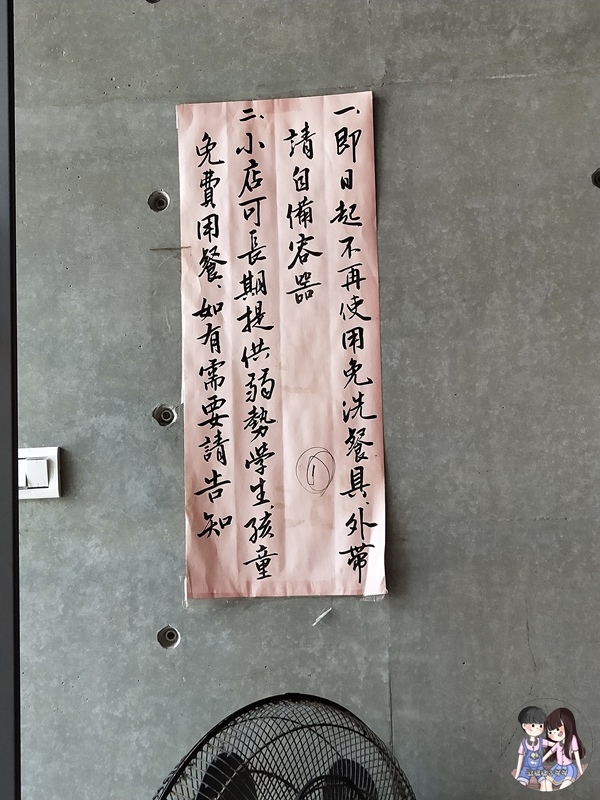 一、即日起不再使用免洗餐具、外帶
請自備容器
二、小店可長期提供弱勢学生、孩童
免費用餐、如有需要請告知
①